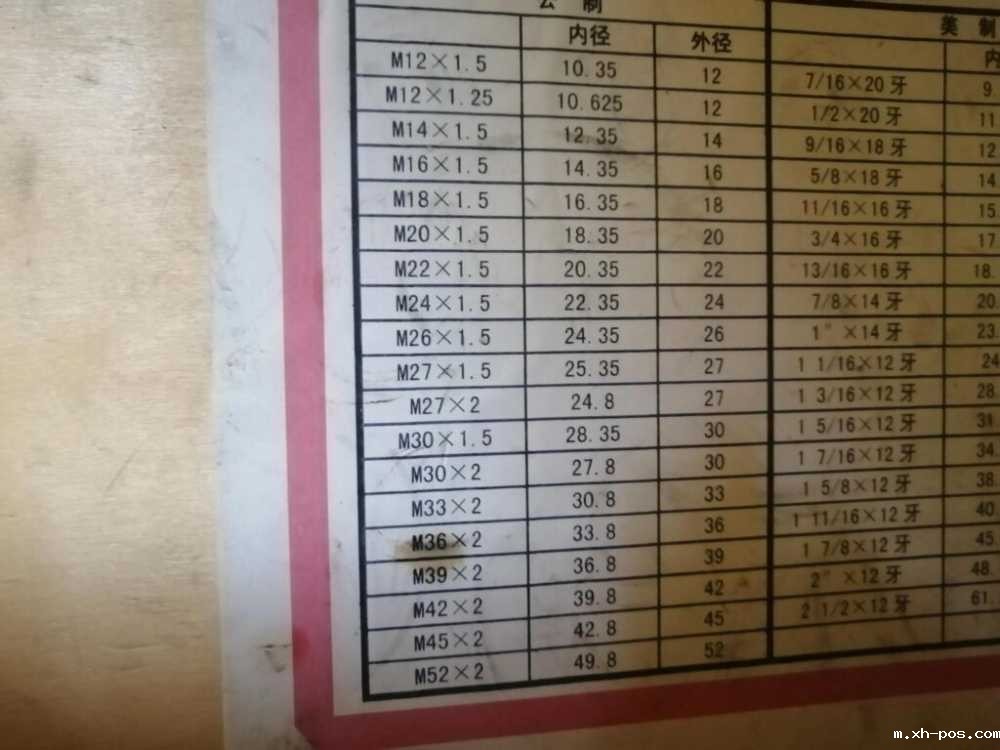 公制 美制
内径 外径 内
M12×1.5 10.35 12 7/16×20牙 9.
M12×1.25 10.625 12 1/2×20牙 11
M14×1.5 12.35 14 9/16×18牙 12
M16×1.5 14.35 16 5/8×18牙 14
M18×1.5 16.35 18 11/16×16牙 15.
M20×1.5 18.35 20 3/4×16牙 17
M22×1.5 20.35 22 13/16×16牙 18.
M24×1.5 22.35 24 7/8×14牙 20
M26×1.5 24.35 26 1"×14牙 23.
M27×1.5 25.35 27 1 1/16×12牙 24
M27×2 24.8 27 1 3/16×12牙 28
M30×1.5 28.35 30 1 5/16×12牙 31
M30×2 27.8 30 1 7/16×12牙 34.
M33×2 30.8 33 1 5/8×12牙 38.
M36×2 33.8 36 1 11/16×12牙 40
M39×2 36.8 39 1 7/8×12牙 45.
M42×2 39.8 42 2"×12牙 48.
M45×2 42.8 45 2 1/2×12牙 61.
M52×2 49.8 52
m.xh-pos.com